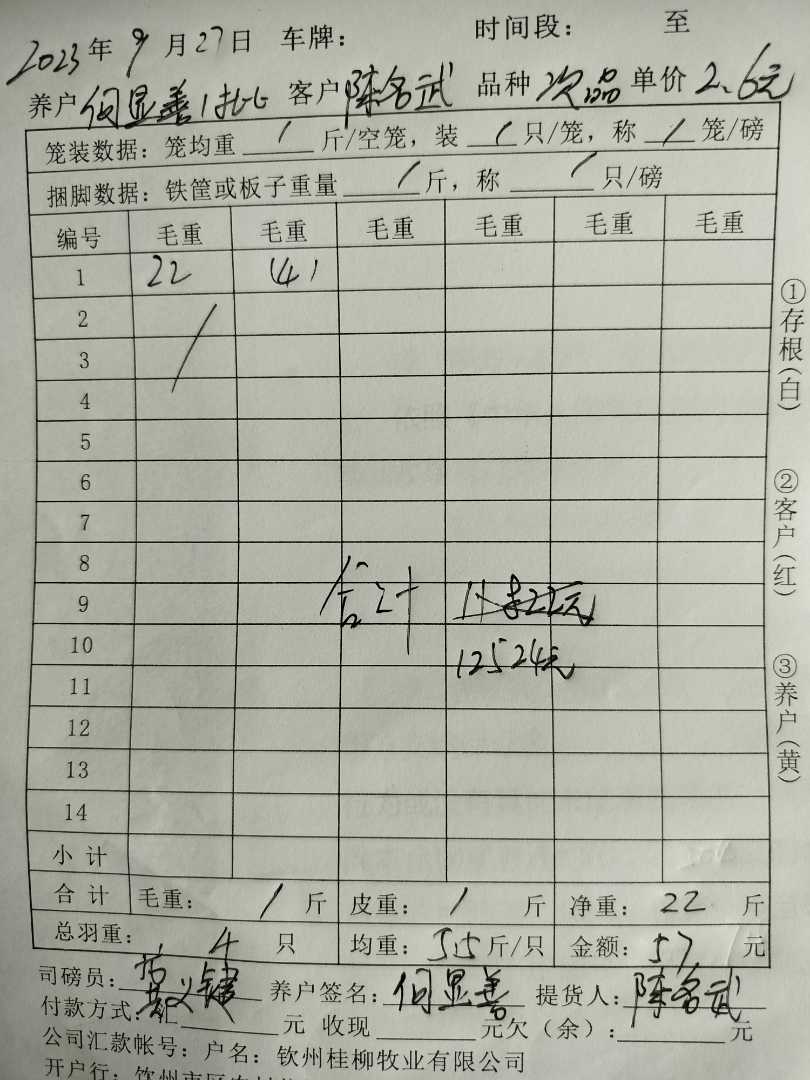 2023年9月27日 车牌： 时间段： 至
养户何显善1批 客户陈名武 品种次品 单价2.6元
笼装数据：笼均重 / 斤/空笼，装 / 只/笼，称 / 笼/磅
捆脚数据：铁筐或板子重量 / 斤，称 / 只/磅
编号 毛重 毛重 毛重 毛重 毛重 毛重
1 22 (4)
2
3
4
5
6
7
8
9 合计
10 12524元
11
12
13
14
小计
合计 毛重： / 斤 皮重： / 斤 净重： 22 斤
总羽重： 4 只 均重： 5.5 斤/只 金额： 57 元
司磅员： 养户签名：何显善 提货人：陈名武
付款方式：汇 元 收现 元欠（余）： 元
公司汇款帐号：户名：钦州桂柳牧业有限公司
开户行：钦州市区农村
①存根(白) ②客户(红) ③养户(黄)